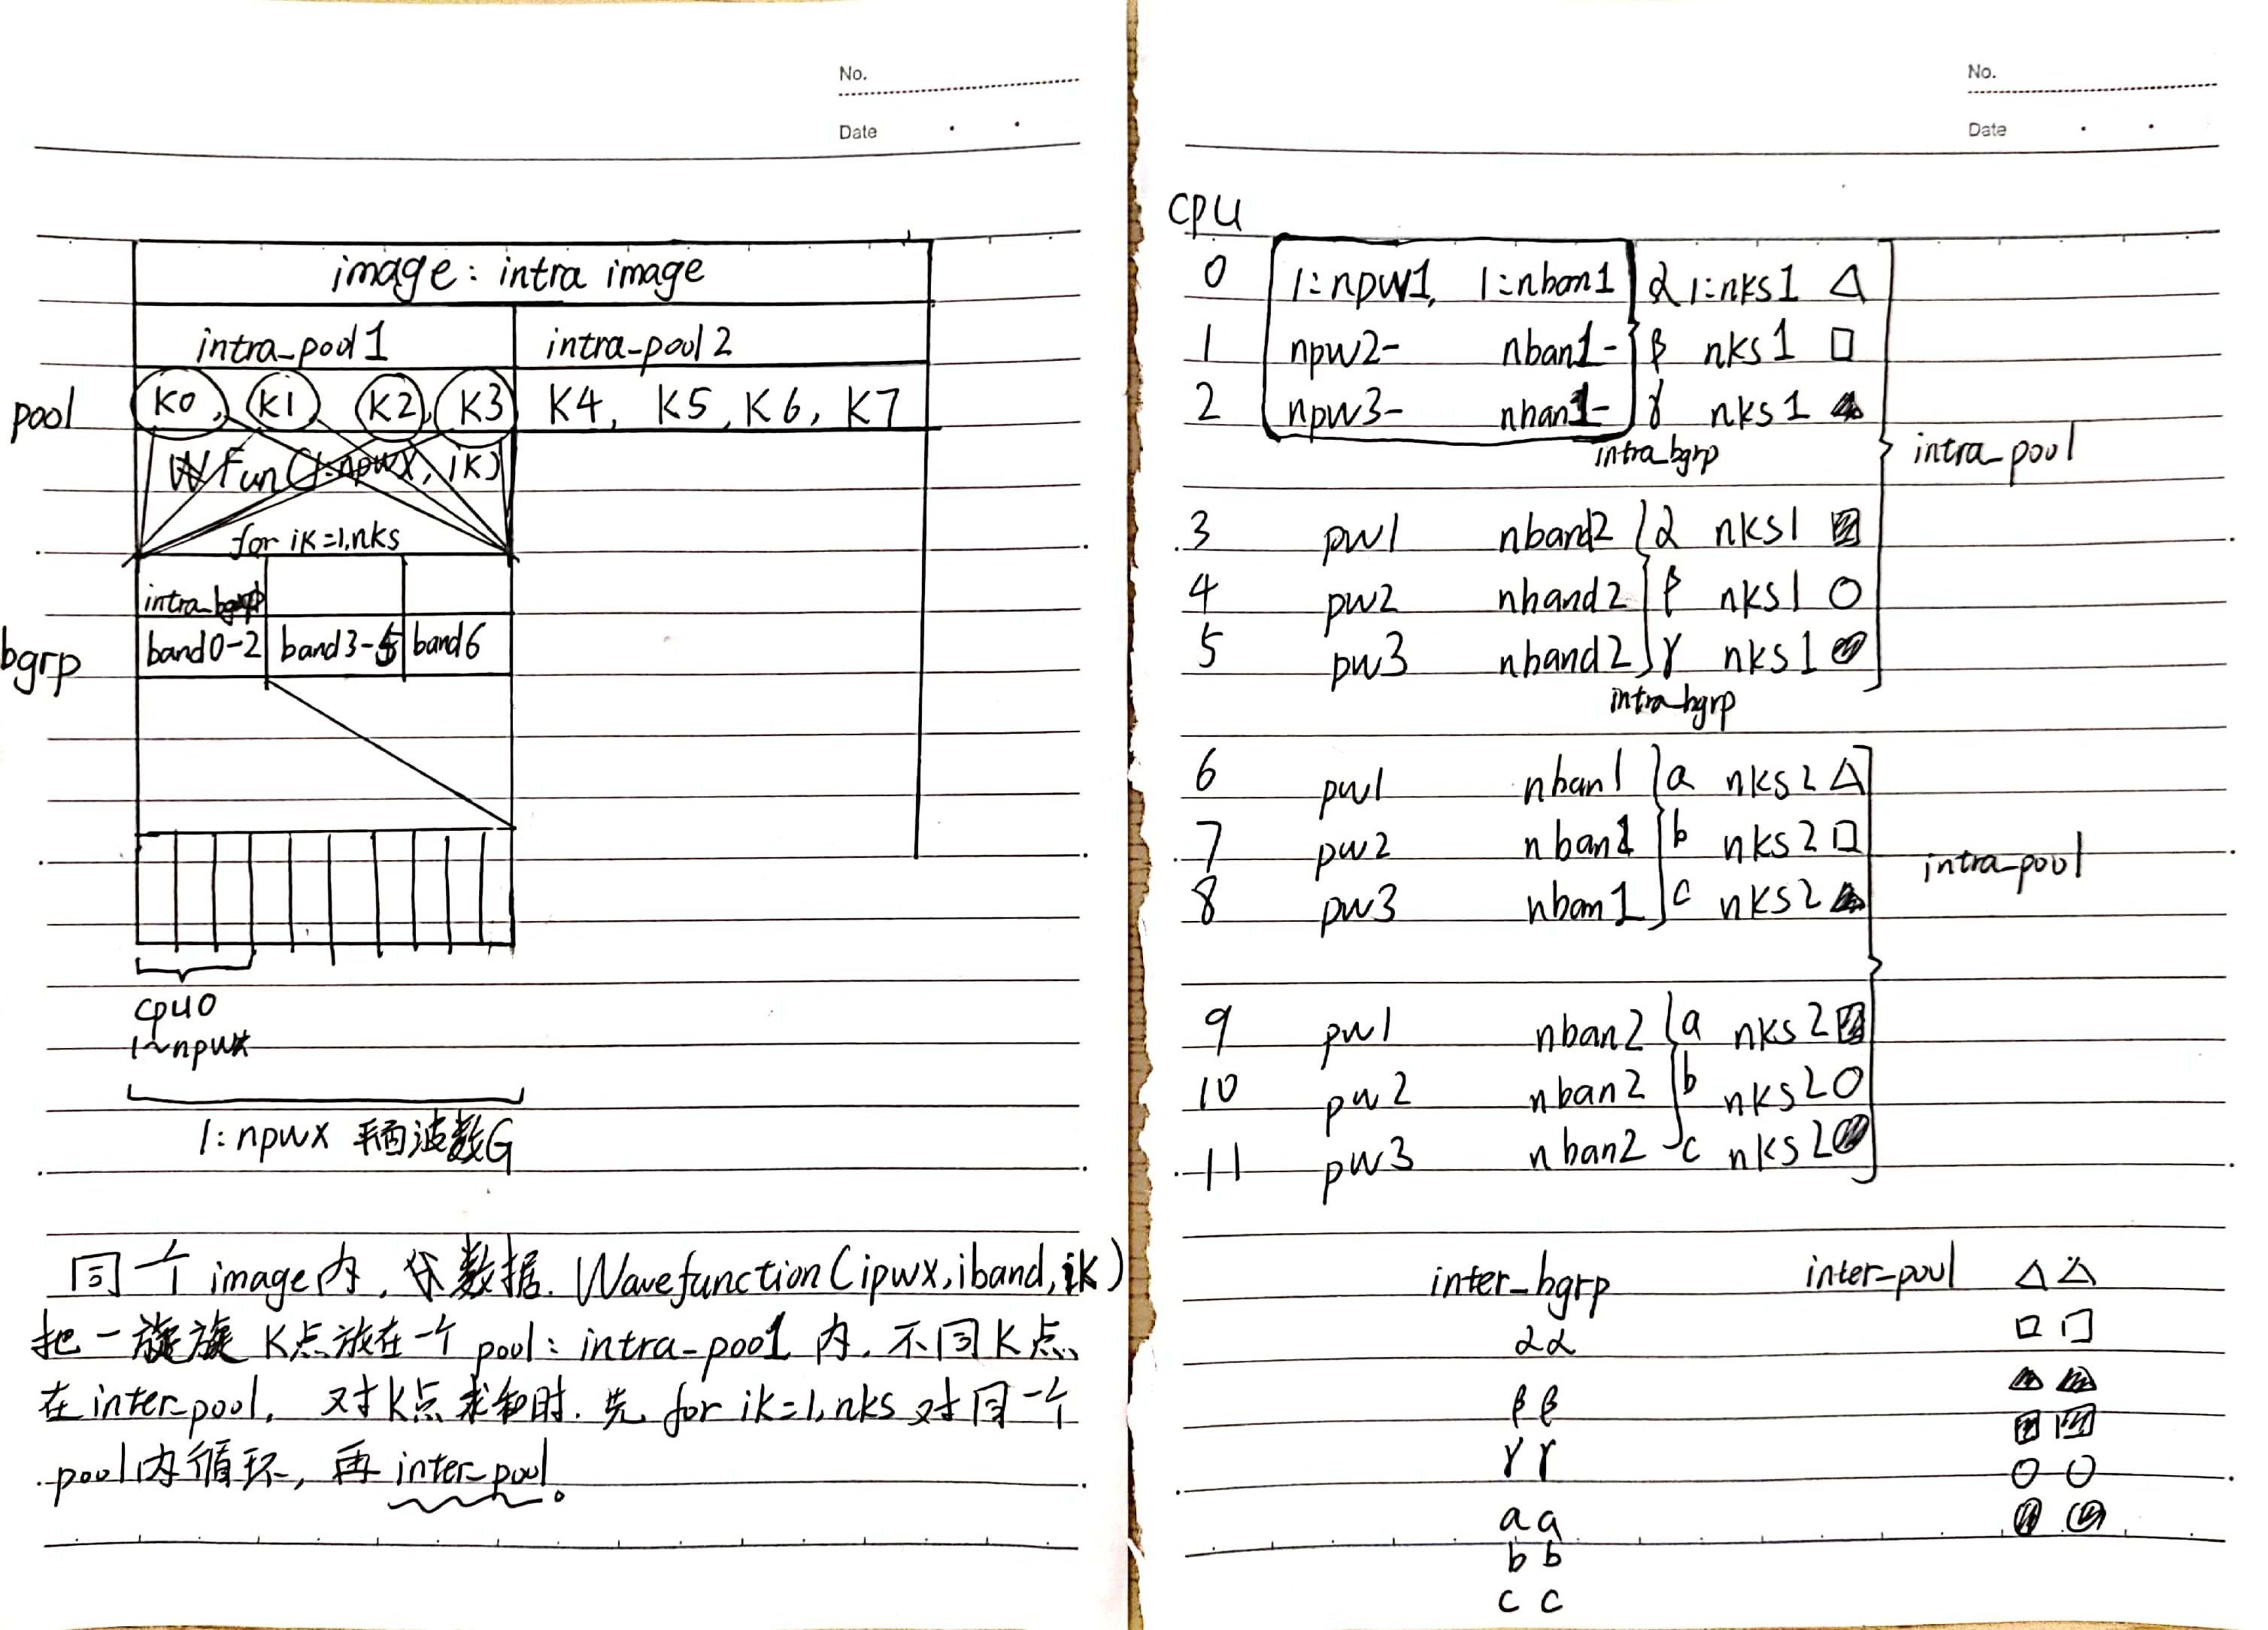 No.
Date
image: intra image
intra_pool 1 intra_pool 2
pool K0, K1, K2, K3 K4, K5, K6, K7
WFun(1:npwx, ik)
for ik=1,nks
intra_bgrp
bgrp band 0-2 band 3-5 band 6
cpu0
1~npwx
1:npwx 平面波数G
同一个 image内, 数据. Wavefunction(ipwx, iband, ik)
把一族 K点放在一个 pool: intra-pool 内. 不同K点
在inter-pool. 对K点求和时. 先 for ik=1,nks 对同一个
pool内循环, 再 inter-pool。
No.
Date
CPU
0 1:npw1, 1:nban1 α 1:nks1 △
1 npw2- nban1- β nks1 □
2 npw3- nban1- γ nks1 ▲
intra_bgrp
intra_pool
3 pw1 nband2 α nks1
4 pw2 nband2 β nks1 ○
5 pw3 nband2 γ nks1
intra_bgrp
6 pw1 nban1 a nks2 △
7 pw2 nban1 b nks2 □
8 pw3 nban1 c nks2 ▲
intra-pool
9 pw1 nban2 a nks2
10 pw2 nban2 b nks2 ○
11 pw3 nban2 c nks2
inter_bgrp inter-pool △△
αα □□
ββ ▲▲
γγ
○○
aa
bb
cc